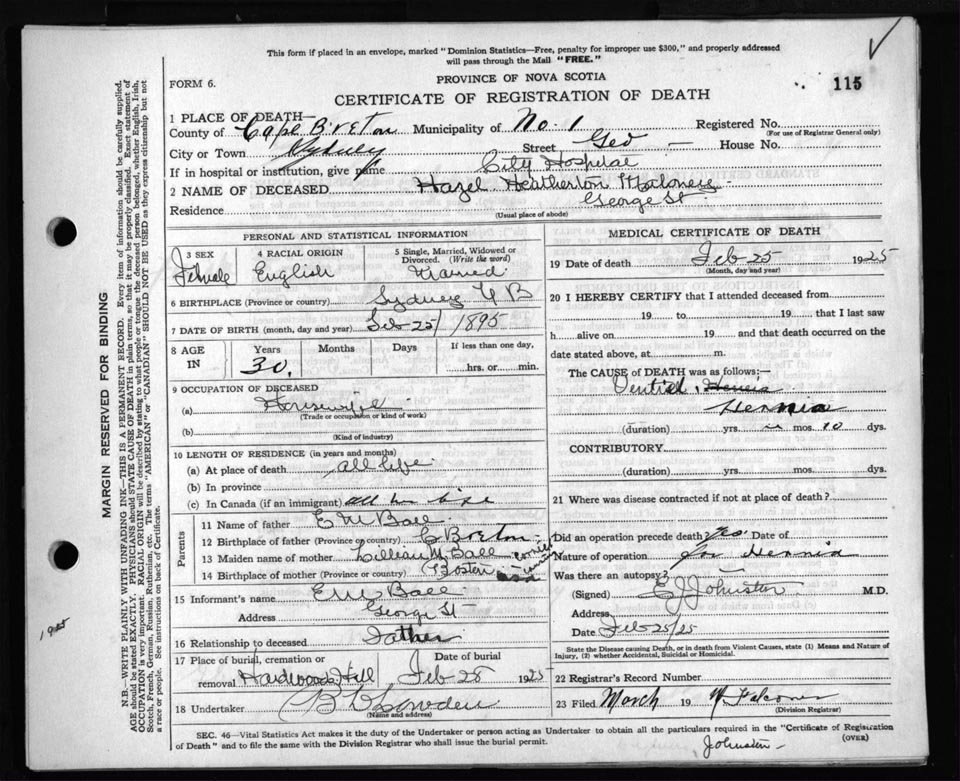 This form if placed in an envelope, marked "Dominion Statistics—Free, penalty for improper use $300," and properly addressed
will pass through the Mail "FREE."
FORM 6.
PROVINCE OF NOVA SCOTIA
115
CERTIFICATE OF REGISTRATION OF DEATH
1 PLACE OF DEATH—
County of Cape Breton Municipality of No. 1 Registered No.
(For use of Registrar General only)
City or Town Sydney Street Geo — House No.
If in hospital or institution, give name City Hospital
2 NAME OF DECEASED Hazel Hertherton Maloney
Residence George St
(Usual place of abode)
PERSONAL AND STATISTICAL INFORMATION
3 SEX 4 RACIAL ORIGIN 5 Single, Married, Widowed or
Divorced. (Write the word)
Female English Married
6 BIRTHPLACE (Province or country) Sydney C B
7 DATE OF BIRTH (month, day and year) Feb 25 / 1895
8 AGE IN Years Months Days If less than one day,
30. hrs. or min.
9 OCCUPATION OF DECEASED
(a) Housewife
(Trade or occupation or kind of work)
(b)
(Kind of industry)
10 LENGTH OF RESIDENCE (in years and months)
(a) At place of death all life
(b) In province
(c) In Canada (if an immigrant) all her life
Parents
11 Name of father E M Ball
12 Birthplace of father (Province or country) C Breton
13 Maiden name of mother Lillian M. Ball
14 Birthplace of mother (Province or country) Boston
15 Informant's name E M Ball
Address George St
16 Relationship to deceased Father
17 Place of burial, cremation or Date of burial
removal Hardwood Hill Feb 28 1925
18 Undertaker
(Name and address)
MEDICAL CERTIFICATE OF DEATH
19 Date of death Feb 25 1925
(Month, day and year)
20 I HEREBY CERTIFY that I attended deceased from
19 to 19 that I last saw
h alive on 19 and that death occurred on the
date stated above, at m.
The CAUSE of DEATH was as follows:—
Ventral Hernia
Hernia
(duration) yrs. mos. 10 dys.
CONTRIBUTORY.
(duration) yrs. mos. dys.
21 Where was disease contracted if not at place of death?
Did an operation precede death? Yes. Date of
Nature of operation for Hernia
Was there an autopsy?
(Signed) E J Johnston M.D.
Address
Date Feb 25/25
State the Disease causing Death, or in death from Violent Causes, state (1) Means and Nature of
Injury, (2) whether Accidental, Suicidal or Homicidal.
22 Registrar's Record Number
23 Filed March 19
(Division Registrar)
SEC. 46—Vital Statistics Act makes it the duty of the Undertaker or person acting as Undertaker to obtain all the particulars required in the "Certificate of Registration
of Death" and to file the same with the Division Registrar who shall issue the burial permit.
(OVER)
Johnston
MARGIN RESERVED FOR BINDING
N.B.—WRITE PLAINLY WITH UNFADING INK—THIS IS A PERMANENT RECORD. Every item of information should be carefully supplied.
AGE should be stated EXACTLY. PHYSICIANS should STATE CAUSE OF DEATH in plain terms, so that it may be properly classified. Exact statement of
OCCUPATION is very important. RACIAL ORIGIN will be described by stating to what people or tongue the deceased person belonged, whether English, Irish,
Scotch, French, German, Russian, Ruthenian, etc. The terms "AMERICAN" or "CANADIAN" SHOULD NOT BE USED as they express citizenship but not
a race or people. See instructions on back of Certificate.